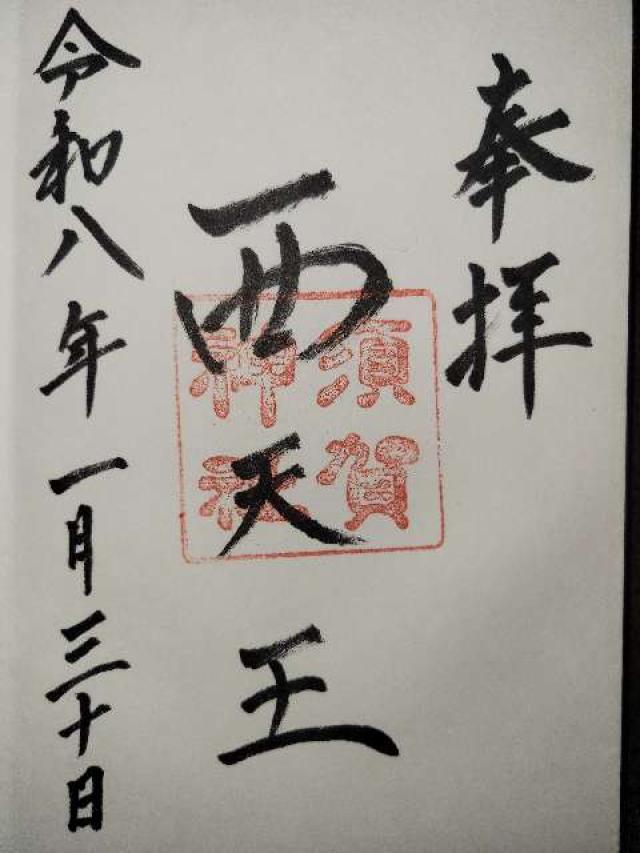 奉拝
西天王
須賀神社
令和八年一月三十日